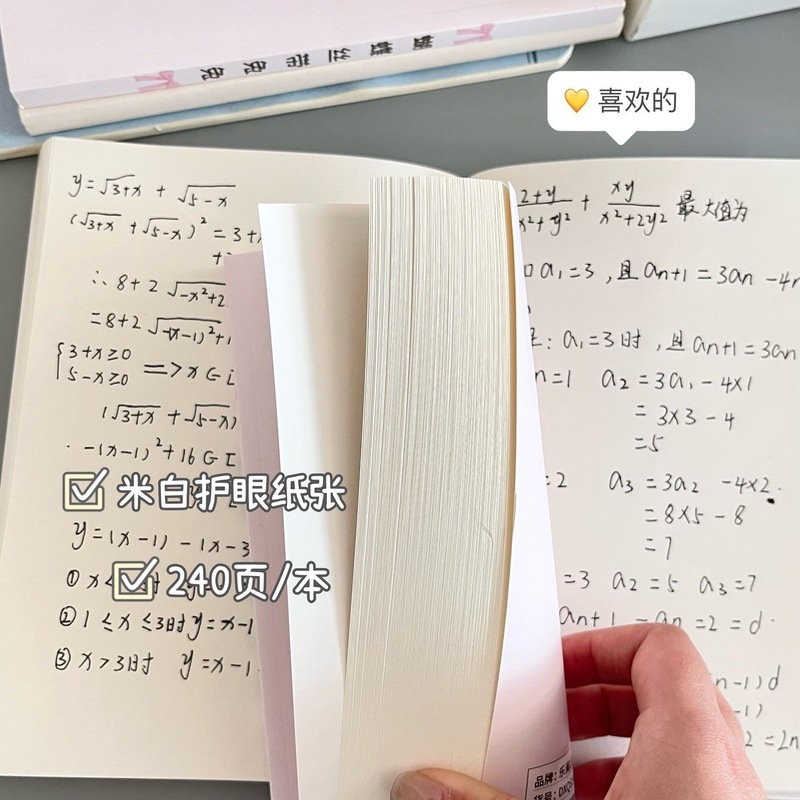 蝴蝶丝带兔兔
喜欢的
y=√3+x + √5-x
(√3+x + √5-x)² = 3+
∴ 8+2√-x²+2
=8+2√-(x-1)²+
{3+x≥0
5-x≥0 => x∈[
(√3+x + √5-x)
-(x-1)²+16∈[
米白护眼纸张
y=|x-1|-|x-3
① x<
240页/本
② 1≤x≤3时y=x-1
③ x>3时 y=x-1
2+y/x²+y² + xy/x²+2y² 最大值为
a₁=3,且an+1=3an-4n
:a₁=3时,且an+1=3an
n=1 a₂=3a₁-4×1
=3×3-4
=5
=2 a₃=3a₂-4×2.
=8×5-8
=7
=3 a₂=5 a₃=7
an+1-an=2=d.
n-1)d
-1)
2=2n
品牌:乐
货号:DXQ